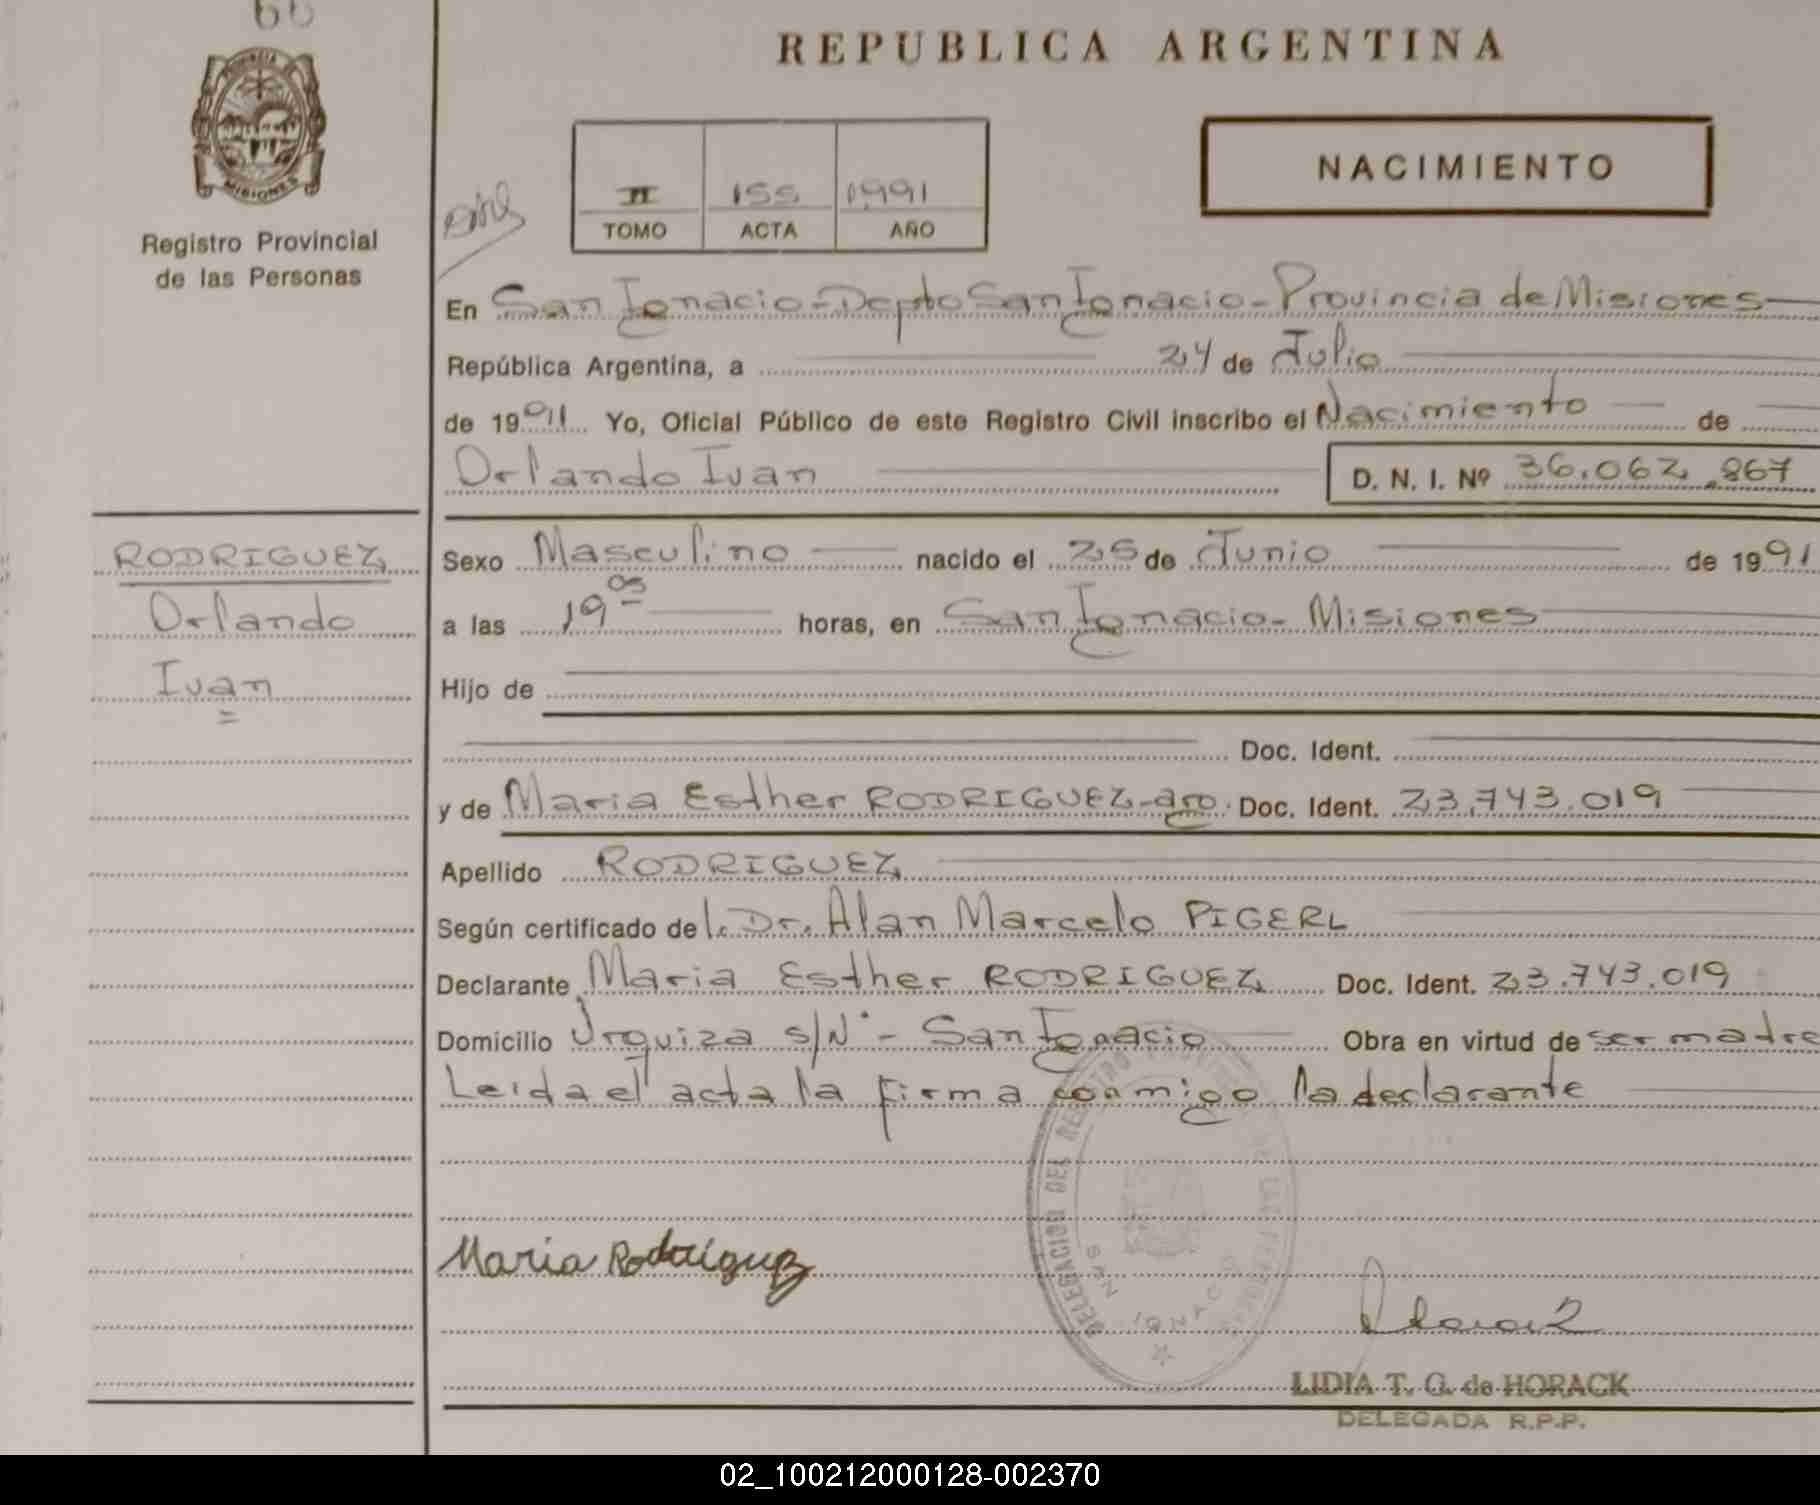 66
REPUBLICA ARGENTINA
PROVINCIA
MISIONES
Registro Provincial
de las Personas
II 155 1991
TOMO ACTA AÑO
NACIMIENTO
En San Ignacio - Depto San Ignacio - Provincia de Misiones
República Argentina, a 24 de Julio
de 1991 Yo, Oficial Público de este Registro Civil inscribo el Nacimiento de
Orlando Ivan D. N. I. Nº 36.062.867
RODRIGUEZ
Orlando
Ivan
Sexo Masculino nacido el 25 de Junio de 1991
a las 19 05 horas, en San Ignacio - Misiones
Hijo de
Doc. Ident.
y de Maria Esther RODRIGUEZ - arg. Doc. Ident. 23.743.019
Apellido RODRIGUEZ
Según certificado de l. Dr. Alan Marcelo PIGERL
Declarante Maria Esther RODRIGUEZ Doc. Ident. 23.743.019
Domicilio Urquiza s/Nº - San Ignacio Obra en virtud de ser madre
Leida el acta la firma conmigo la declarante
DELEGACION DEL REGISTRO DE LAS PERSONAS
SAN IGNACIO
Maria Rodriguez
LIDIA T. G. de HORACK
DELEGADA R.P.P.
02_100212000128-002370